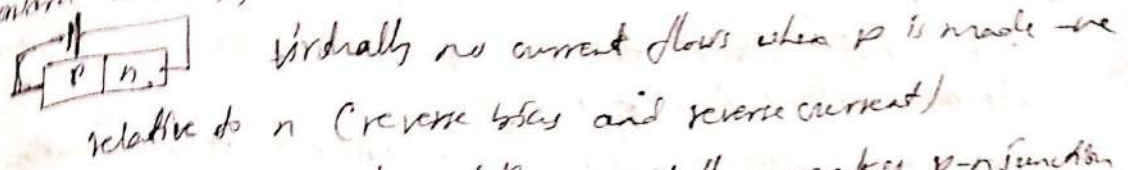 p n Virtually no current flows when p is made -ve
relative to n (reverse bias and reverse current)
p-n junction